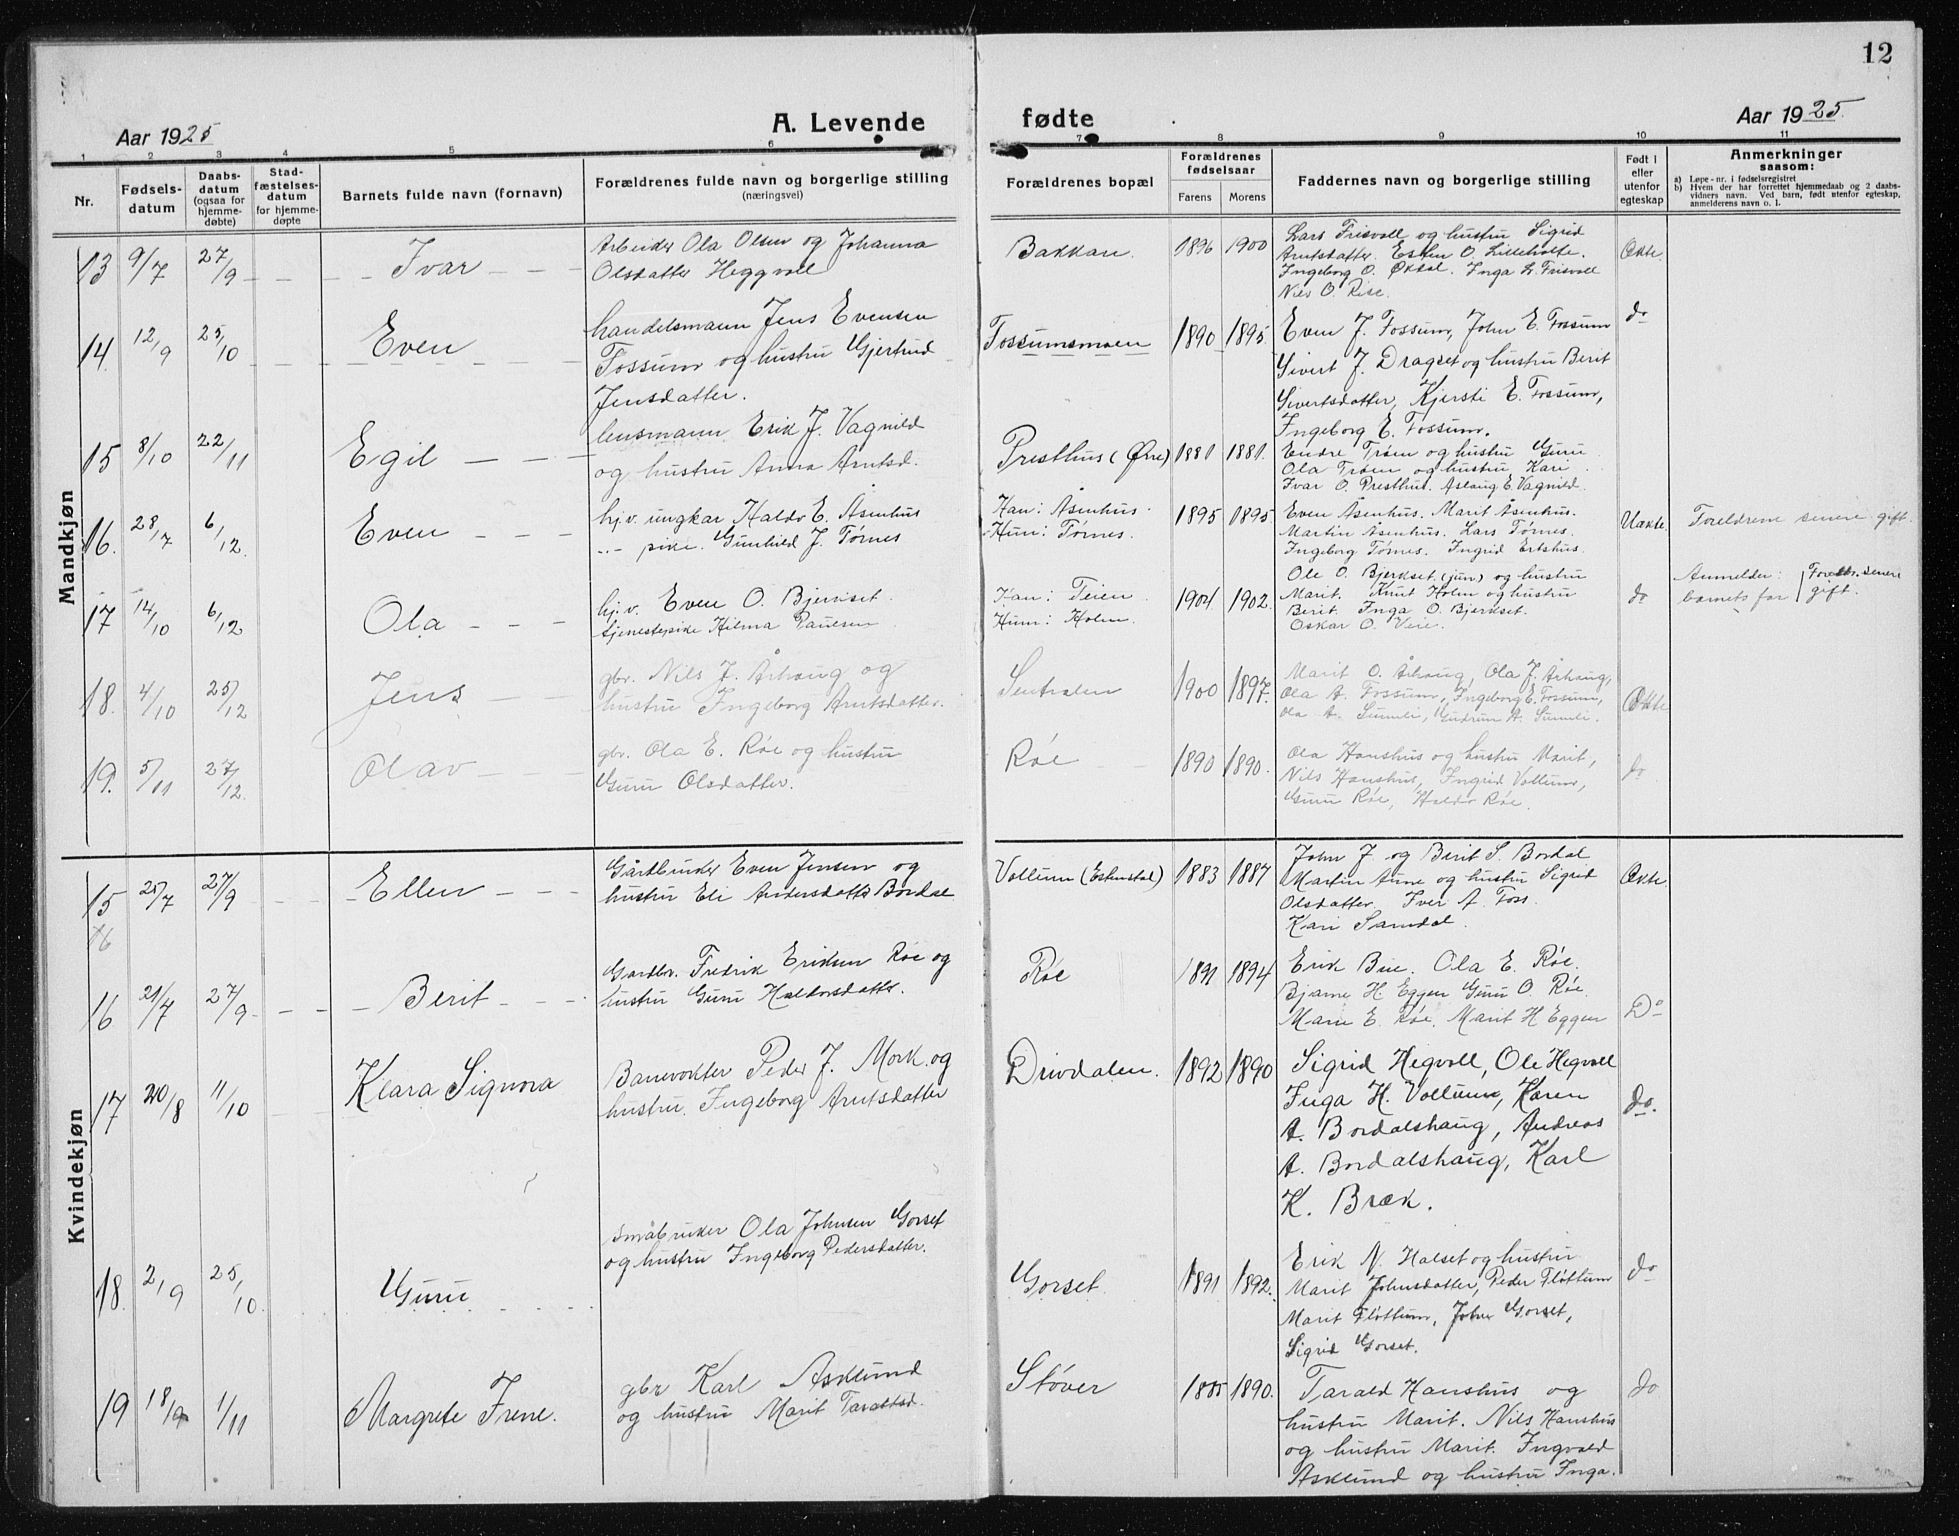 12
Aar 1925
A. Levende
fødte
Aar 1925.
1 2 3 4 5 6 7 8 9 10 11
Nr.
Fødsels-
datum
Daabs-
datum
(ogsaa for
hjemme-
døbte)
Stad-
fæstelses-
datum
for hjemme-
døpte
Barnets fulde navn (fornavn)
Forældrenes fulde navn og borgerlige stilling
(næringsvei)
Forældrenes bopæl
Forældrenes
fødselsaar
Farens Morens
Faddernes navn og borgerlige stilling
Født i
eller
utenfor
egteskap
Anmerkninger
saasom:
a) Løpe-nr. i fødselsregistret
b) Hvem der har forrettet hjemmedaab og 2 daabs-
vidners navn. Ved barn, født utenfor egteskap,
anmelderens navn o. l.
Mandkjøn
13 9/7 27/9 Ivar
Arbeider Ola Olsen og Johanna
Olsdatter Heggvoll
Bakkan. 1896 1900
Lars Frisvoll og hustru Sigrid
Arntsdatter. Esten O. Lilleholte.
Ingeborg O. Økdal. Inga L. Frisvoll
Nils O. Rise.
Ekte.
14 12/9 25/10 Even
handelsmann Jens Evensen
Fossum og hustru Gjertrud
Jensdatter.
Fossumsmoen 1890 1895.
Even J. Fossum, John E. Fossum
Sivert J. Dragset og hustru Berit
Sivertsdatter, Kjersti E. Fossum,
Ingeborg E. Fossum.
do
15 8/10 22/11 Egil
lensmann Erik J. Vagnild
og hustru Anna Arntsd.
Presthus (Øre) 1881 1881.
Endre Trøen og hustru Guru
Ola Trøen og hustru Kari
Ivar O. Presthus. Aslaug E. Vagnild.
16. 28/7 6/12. Even
hj.v. ungkar Haldo E. Åsenhus
-"- pike. Gunhild J. Tørnes
Han: Åsenhus.
Hun: Tørnes.
1895 1895.
Even Åsenhus. Marit Åsenhus.
Martin Åsenhus. Lars Tørnes.
Ingeborg Tørnes. Ingrid Ertshus.
Uekte.
Foreldrene senere gift.
17 14/10 6/12 Ola
hj.v. Even O. Bjerkset.
tjenestepike Hilma Paulsen
Han: Teien
Hun: Holm.
1904 1902.
Ole O. Bjerkset (jun) og hustru
Marit. Knut Holm og hustru
Berit. Inga O. Bjerkset.
Oskar O. Veie.
do
Anmelder:
barnets far
Foreldr. senere
gift.
18. 4/10 25/12 Jens
gbr. Nils J. Århaug og
hustru Ingeborg Arntsdatter.
Sentralen 1900 1897.
Marit O. Århaug, Ola J. Århaug,
Ola A. Fossum, Ingeborg E. Fossum,
Ola A. Sumli, Gudrun A. Sumli.
Ekte
19. 5/11 27/12. Olav
gbr. Ola E. Røe og hustru
Guru Olsdatter.
Røe 1890 1890.
Ola Hanshus og hustru Marit,
Nils Hanshus, Ingrid Vollum,
Guru Røe, Haldo Røe.
do
Kvindekjøn
15 25/7 27/9 Ellen
16
Gårdbruker Even Jensen og
hustru Eli Andersdatter Bordal
Vollum (Estenstal) 1883 1887
John J. og Berit S. Bordal
Martin Aune og hustru Sigrid
Olsdatter. Iver A. Foss.
Kari Samdal.
Ekte.
16 21/7 27/9 Berit
Gardbr. Fredrik Eriksen Røe og
hustru Guru Haldorsdatter.
Røe 1891 1894
Erik Bue. Ola E. Røe.
Bjarne H. Eggen Guru O. Røe.
Marie E. Røe. Marit H Eggen
Do
17 20/8 11/10 Klara Signora
Banevokter Peder J. Mork og
hustru Ingeborg Arntsdatter
Drivdalen. 1892 1890
Sigrid Hegvoll, Ole Hegvoll
Inga H. Vollum, Karen
A. Bordalshaug, Andreas
A. Bordalshaug, Karl
K. Bræk.
do.
18. 2/9 25/10. Guru
Småbruker Ola Johnsen Gorset
og hustru Ingeborg Pedersdatter.
Gorset. 1891 1892.
Erik N. Halset og hustru
Marit Johnsdatter, Peder Fløttum
Marit Fløttum, John Gorset,
Sigrid Gorset.
do
19 18/9 1/11 Margrete Irene.
gbr Karl Asklund
og hustru Marit Taraldsd.
Støver 1885 1890.
Tarald Hanshus og
hustru Marit. Nils Hanshus
og hustru Marit. Ingvald
Asklund og hustru Inga.
do